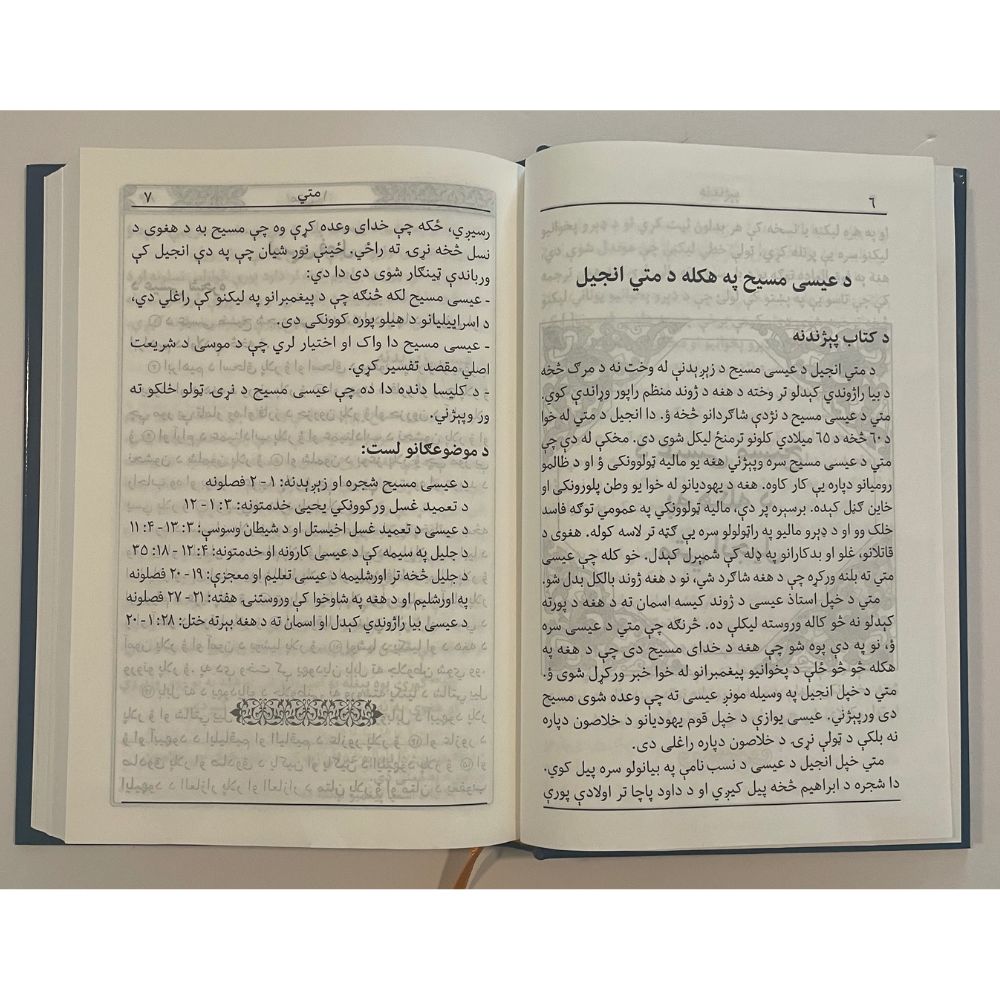 ٦
د عیسی مسیح په هکله د متي انجیل
د کتاب پېژندنه
د متي انجیل د عیسی مسیح د زېږېدنې له وخت نه د مرګ څخه
د بیا راژوندي کېدلو تر وخته د هغه د ژوند منظم راپور وړاندې کوي.
متي د عیسی مسیح د نژدې شاګردانو څخه ؤ. دا انجیل د متي له خوا
د ٦٠ څخه د ٦٥ میلادي کلونو ترمنځ لیکل شوی دی. مخکې له دې چې
متي د عیسی مسیح سره وپېژني هغه یو مالیه ټولوونکی ؤ او د ظالمو
رومیانو دپاره یې کار کاوه. هغه د یهودیانو له خوا یو وطن پلورونکی او
خاین ګڼل کېده. برسېره پر دې، مالیه ټولوونکي په عمومي توګه فاسد
خلک وو او د ډېرو مالیو په راټولولو سره یې ګټه تر لاسه کوله. هغوی د
قاتلانو، غلو او بدکارانو په ډله کې شمېرل کېدل. خو کله چې عیسی
متي ته بلنه ورکړه چې د هغه شاګرد شي، نو د هغه ژوند بالکل بدل شو.
متي د خپل استاذ عیسی د ژوند کیسه اسمان ته د هغه د پورته
کېدلو نه څو کاله وروسته لیکلې ده. څرنګه چې متي د عیسی سره
ؤ، نو په دې پوه شو چې هغه د خدای مسیح دی چې د هغه په
هکله څو څو ځلې د پخوانیو پیغمبرانو له خوا خبر ورکړل شوی ؤ.
متي د خپل انجیل په وسیله مونږ عیسی ته چې وعده شوی مسیح
دی ورپېژني. عیسی یوازې د خپل قوم یهودیانو د خلاصون دپاره
نه بلکې د ټولې نړۍ د خلاصون دپاره راغلی دی.
متي خپل انجیل د عیسی د نسب نامې په بیانولو سره پیل کوي.
دا شجره د ابراهیم څخه پیل کیږي او د داود پاچا تر اولادې پورې
متي ٧
رسیږي، ځکه چې خدای وعده کړې وه چې مسیح به د هغوی د
نسل څخه نړۍ ته راځي. ځینې نور شیان چې په دې انجیل کې
ورباندې ټینګار شوی دی دا دي:
- عیسی مسیح لکه څنګه چې د پیغمبرانو په لیکنو کې راغلي دي،
د اسراییلیانو د هیلو پوره کوونکی دی.
- عیسی مسیح دا واک او اختیار لري چې د موسی د شریعت
اصلي مقصد تفسیر کړي.
- د کلیسا دنده دا ده چې عیسی مسیح د نړۍ ټولو خلکو ته
ور وپېژني.
د موضوعګانو لست:
د عیسی مسیح شجره او زېږېدنه: ١ - ٢ فصلونه
د تعمید غسل ورکوونکي یحیی خدمتونه: ٣:١ - ١٢
د عیسی د تعمید غسل اخیستل او د شیطان وسوسې: ٣:١٣ - ٤:١١
د جلیل په سیمه کې د عیسی کارونه او خدمتونه: ٤:١٢ - ١٨:٣٥
د جلیل څخه تر اورشلیمه د عیسی تعلیم او معجزې: ١٩ - ٢٠ فصلونه
په اورشلیم او د هغه په شاوخوا کې وروستنۍ هفته: ٢١ - ٢٧ فصلونه
د عیسی بیا راژوندي کېدل او اسمان ته د هغه بېرته ختل: ٢٨:١ - ٢٠